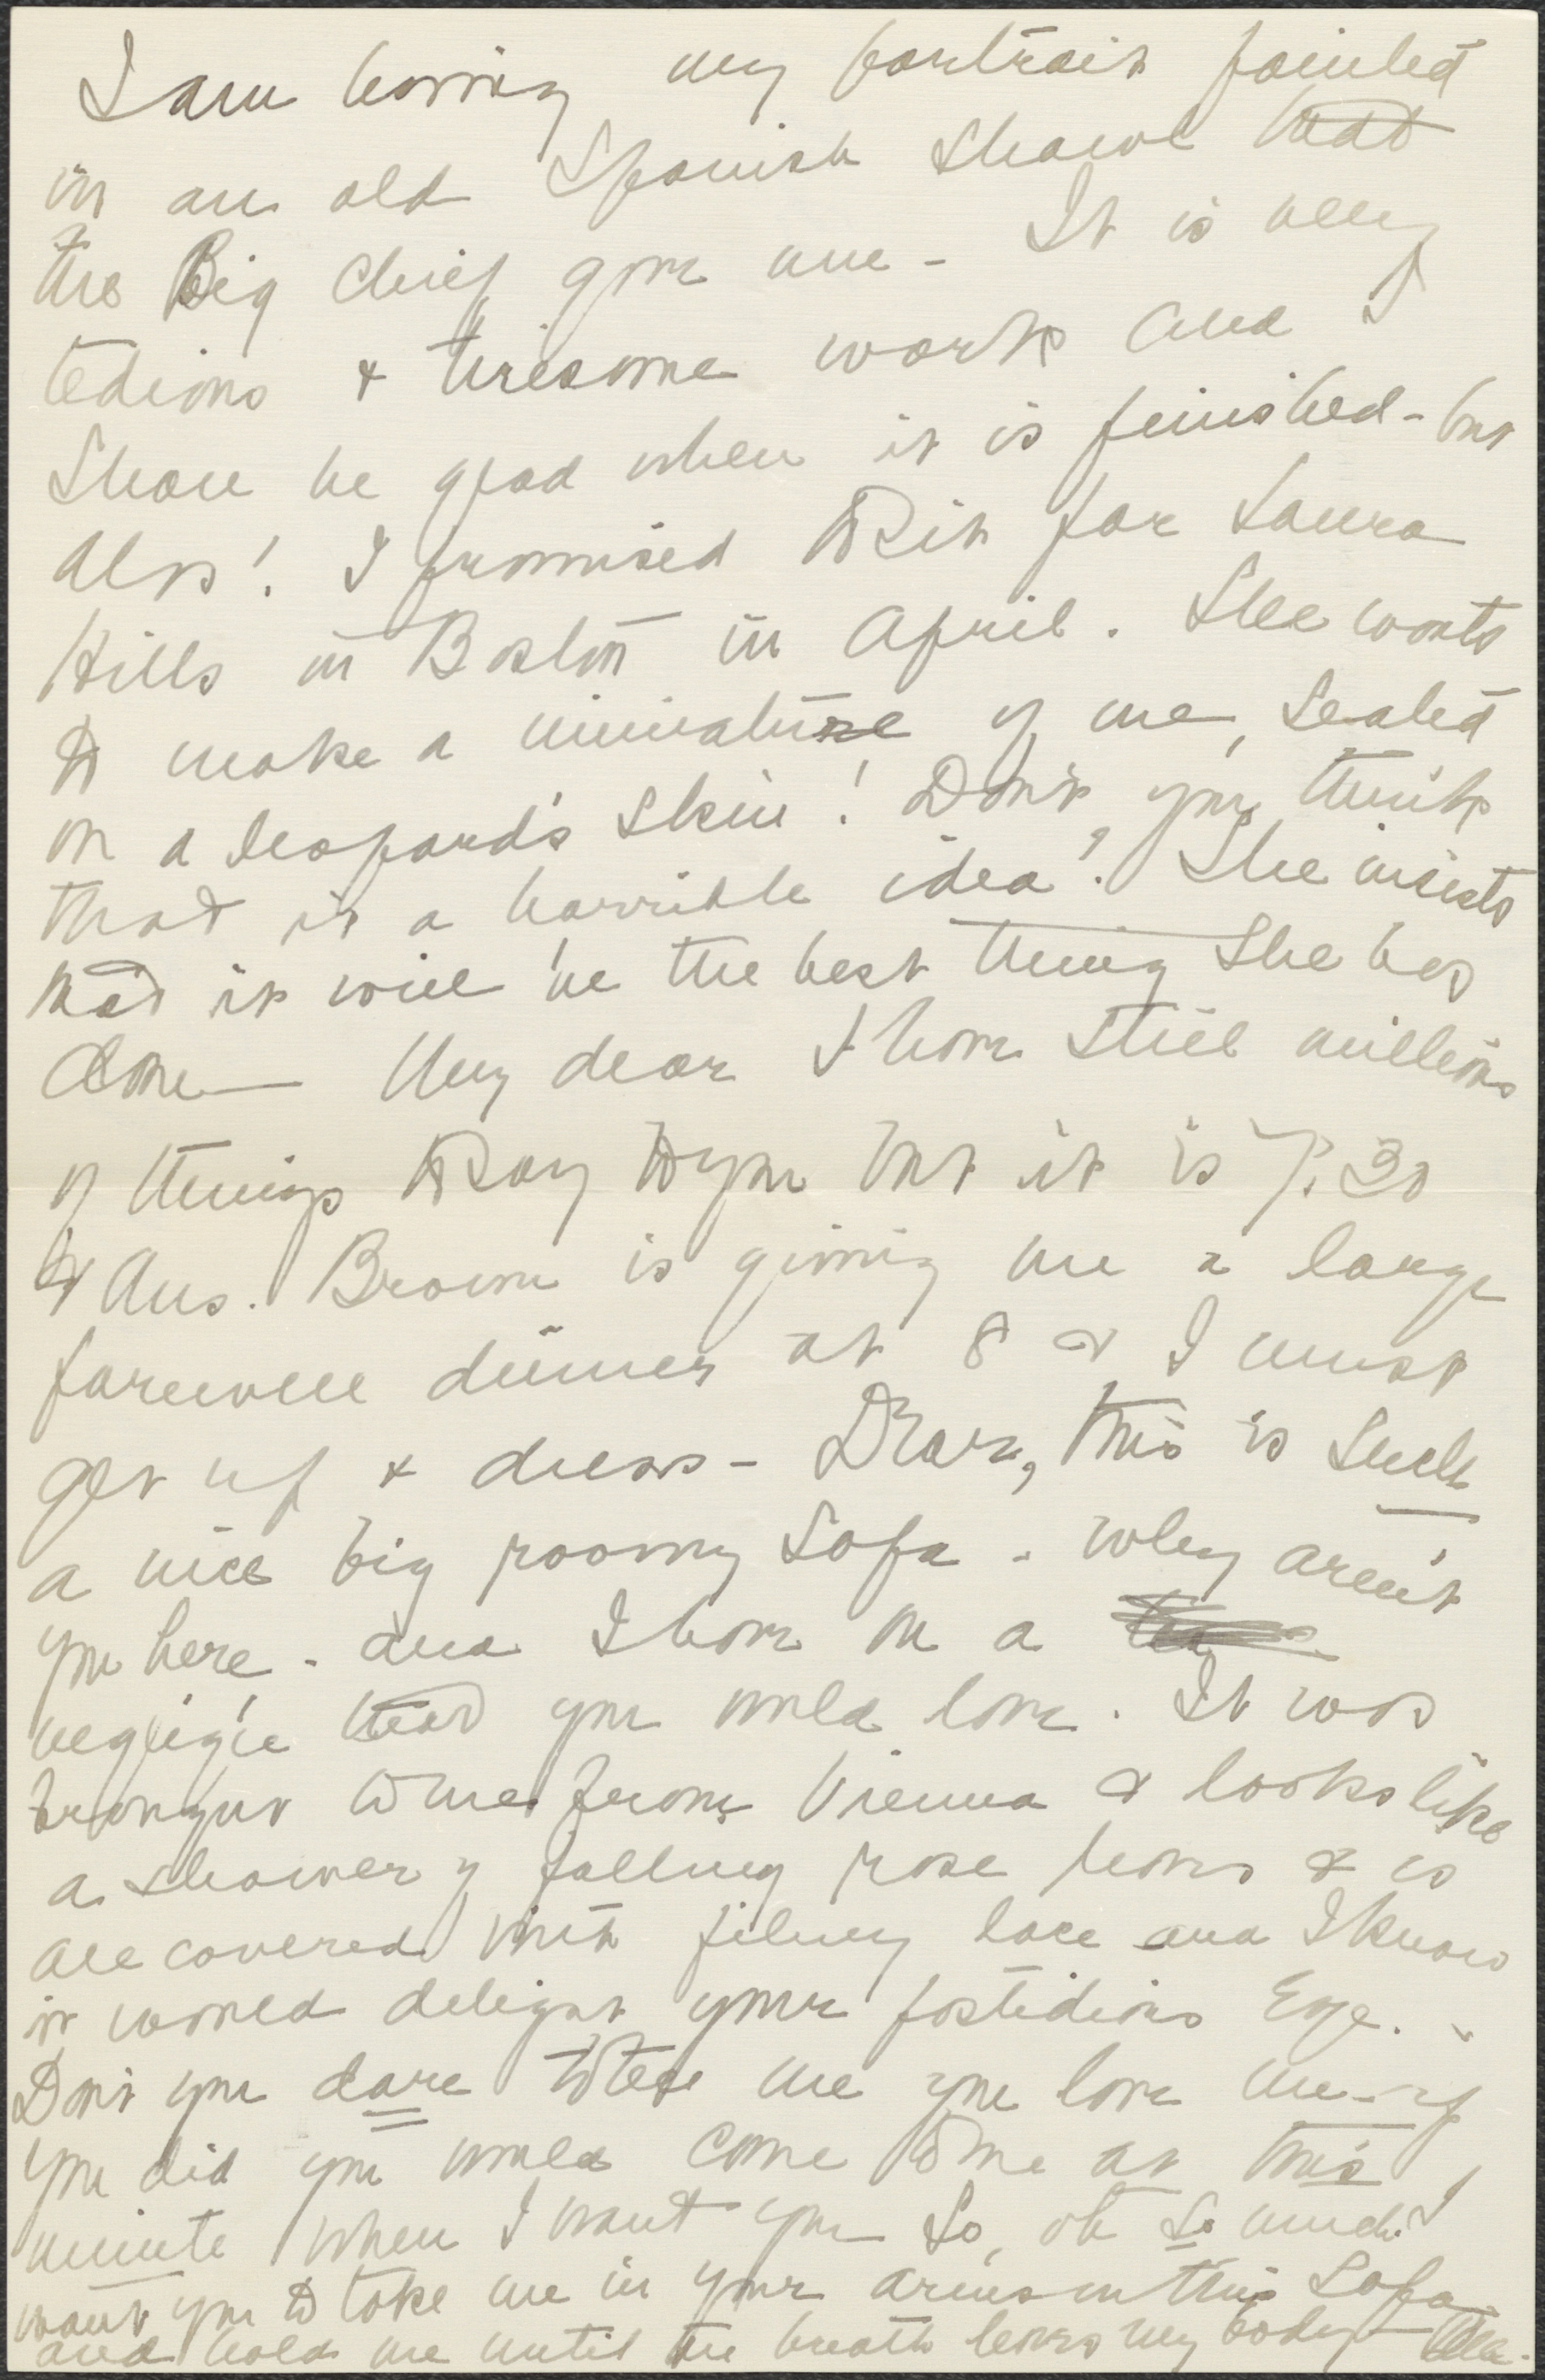 I am having my portrait painted
in an old Spanish Shawl that
the Big Chief gave me - It is very
tedious & tiresome work and I
shall be glad when it is finished - but
Alas! I promised to sit for Laura
Hills in Boston in April. She wants
to make a miniature of me, seated
on a leopard's skin! Don't you think
that is a horrible idea? She insists
that it will be the best thing She has
done — My dear I have still millions
of things to say to you but it is 7.30
& Mrs. Brown is giving me a large
farewell dinner at 8 & I must
get up & dress - Dear, this is such
a nice big roomy Sofa - why aren't
you here - and I have on a
negligée that you would love. It was
brought to me from Vienna & looks like
a shower of falling rose leaves & is
all covered with filmy lace and I know
it would delight your fastidious Eye.
Don't you dare to tell me you love me - if
you did you would come to me at this
minute when I want you So, oh So much! I
want you to take me in your arms on this Sofa
and hold me until the breath leaves my body -